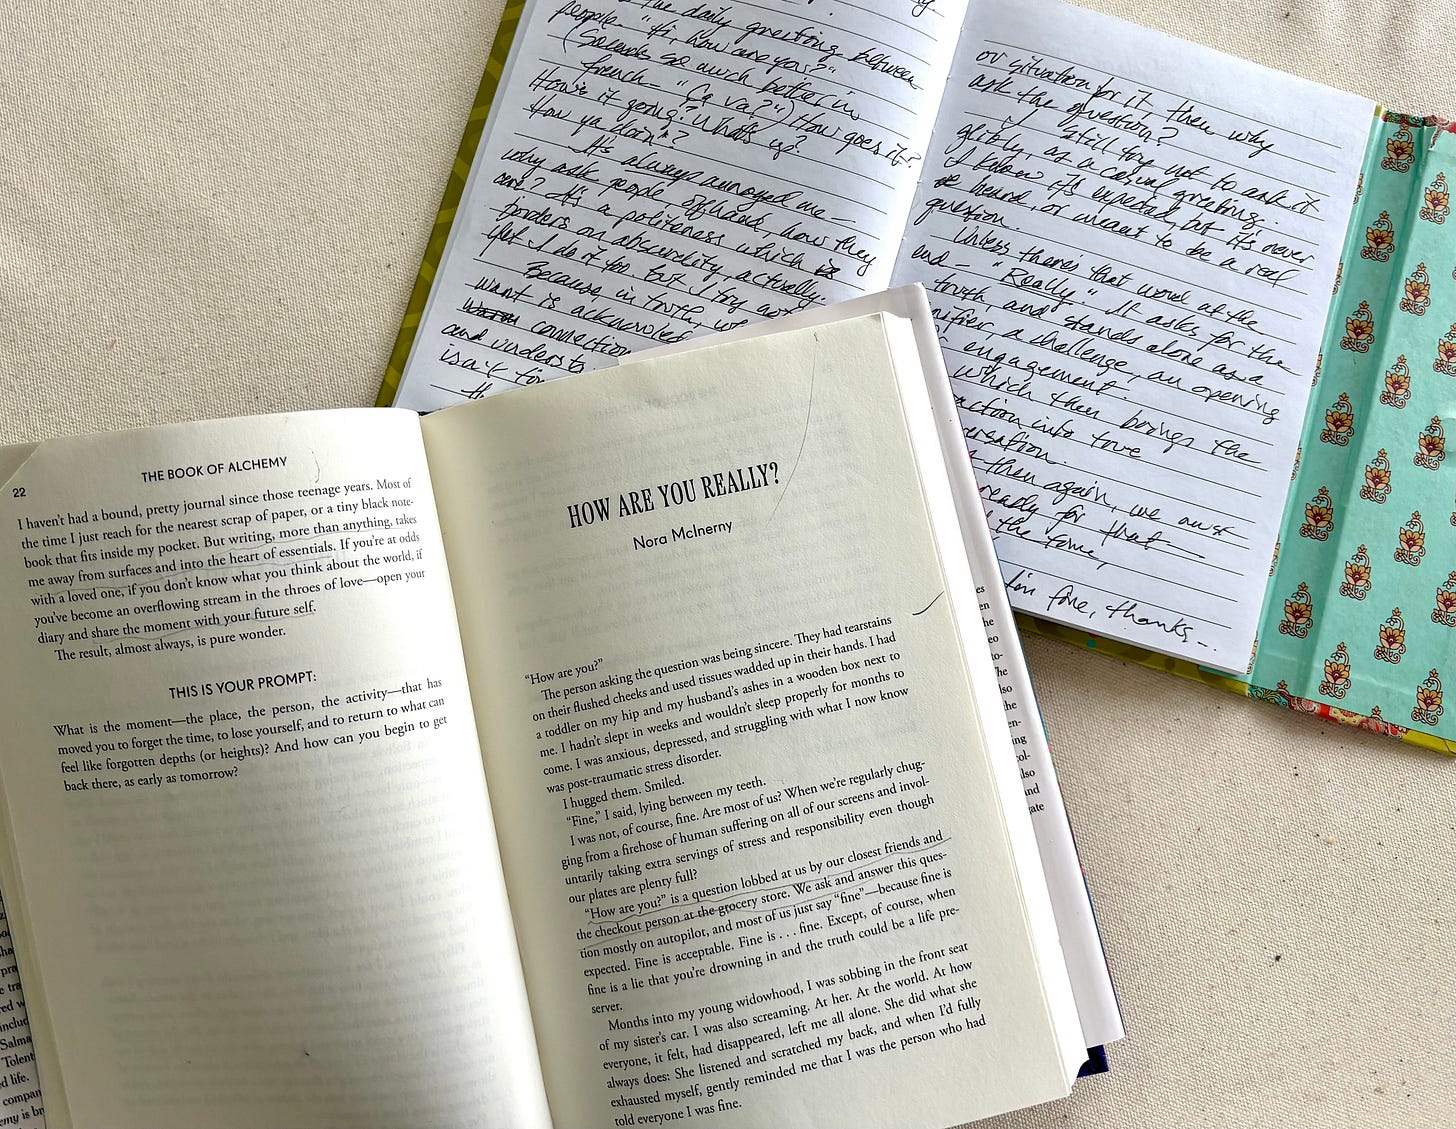 the daily greeting between
people "Hi, how are you?"
(Sounds so much better in
french – "Ça va?") How goes it?
How's it going? What's up?
How ya doin'?
It's always annoyed me –
why ask people offhand, how they
are? It's a politeness which is
borders on absurdity, actually.
Yet I do it too. but I try not
Because, in truth, we
want is acknowled
connection
and understa
isn't tim
th
or situation for it, then why
ask the question?
I still try not to ask it
glibly, as a casual greeting.
I know it's expected, but it's never
heard, or meant to be a real
question.
Unless there's that word at the
end – "Really." It asks for the
truth and stands alone as a
nifier, a challenge, an opening
engagement.
which then brings the
action into true
ersation.
then again, we must
ready for that
the time,
I'm fine, thanks...
22
THE BOOK OF ALCHEMY
I haven't had a bound, pretty journal since those teenage years. Most of
the time I just reach for the nearest scrap of paper, or a tiny black note-
book that fits inside my pocket. But writing, more than anything, takes
me away from surfaces and into the heart of essentials. If you're at odds
with a loved one, if you don't know what you think about the world, if
you've become an overflowing stream in the throes of love—open your
diary and share the moment with your future self.
The result, almost always, is pure wonder.
THIS IS YOUR PROMPT:
What is the moment—the place, the person, the activity—that has
moved you to forget the time, to lose yourself, and to return to what can
feel like forgotten depths (or heights)? And how can you begin to get
back there, as early as tomorrow?
HOW ARE YOU REALLY?
Nora McInerny
"How are you?"
The person asking the question was being sincere. They had tearstains
on their flushed cheeks and used tissues wadded up in their hands. I had
a toddler on my hip and my husband's ashes in a wooden box next to
me. I hadn't slept in weeks and wouldn't sleep properly for months to
come. I was anxious, depressed, and struggling with what I now know
was post-traumatic stress disorder.
I hugged them. Smiled.
"Fine," I said, lying between my teeth.
I was not, of course, fine. Are most of us? When we're regularly chug-
ging from a firehose of human suffering on all of our screens and invol-
untarily taking extra servings of stress and responsibility even though
our plates are plenty full?
"How are you?" is a question lobbed at us by our closest friends and
the checkout person at the grocery store. We ask and answer this ques-
tion mostly on autopilot, and most of us just say "fine"—because fine is
expected. Fine is acceptable. Fine is . . . fine. Except, of course, when
fine is a lie that you're drowning in and the truth could be a life pre-
server.
Months into my young widowhood, I was sobbing in the front seat
of my sister's car. I was also screaming. At her. At the world. At how
everyone, it felt, had disappeared, left me all alone. She did what she
always does: She listened and scratched my back, and when I'd fully
exhausted myself, gently reminded me that I was the person who had
told everyone I was fine.